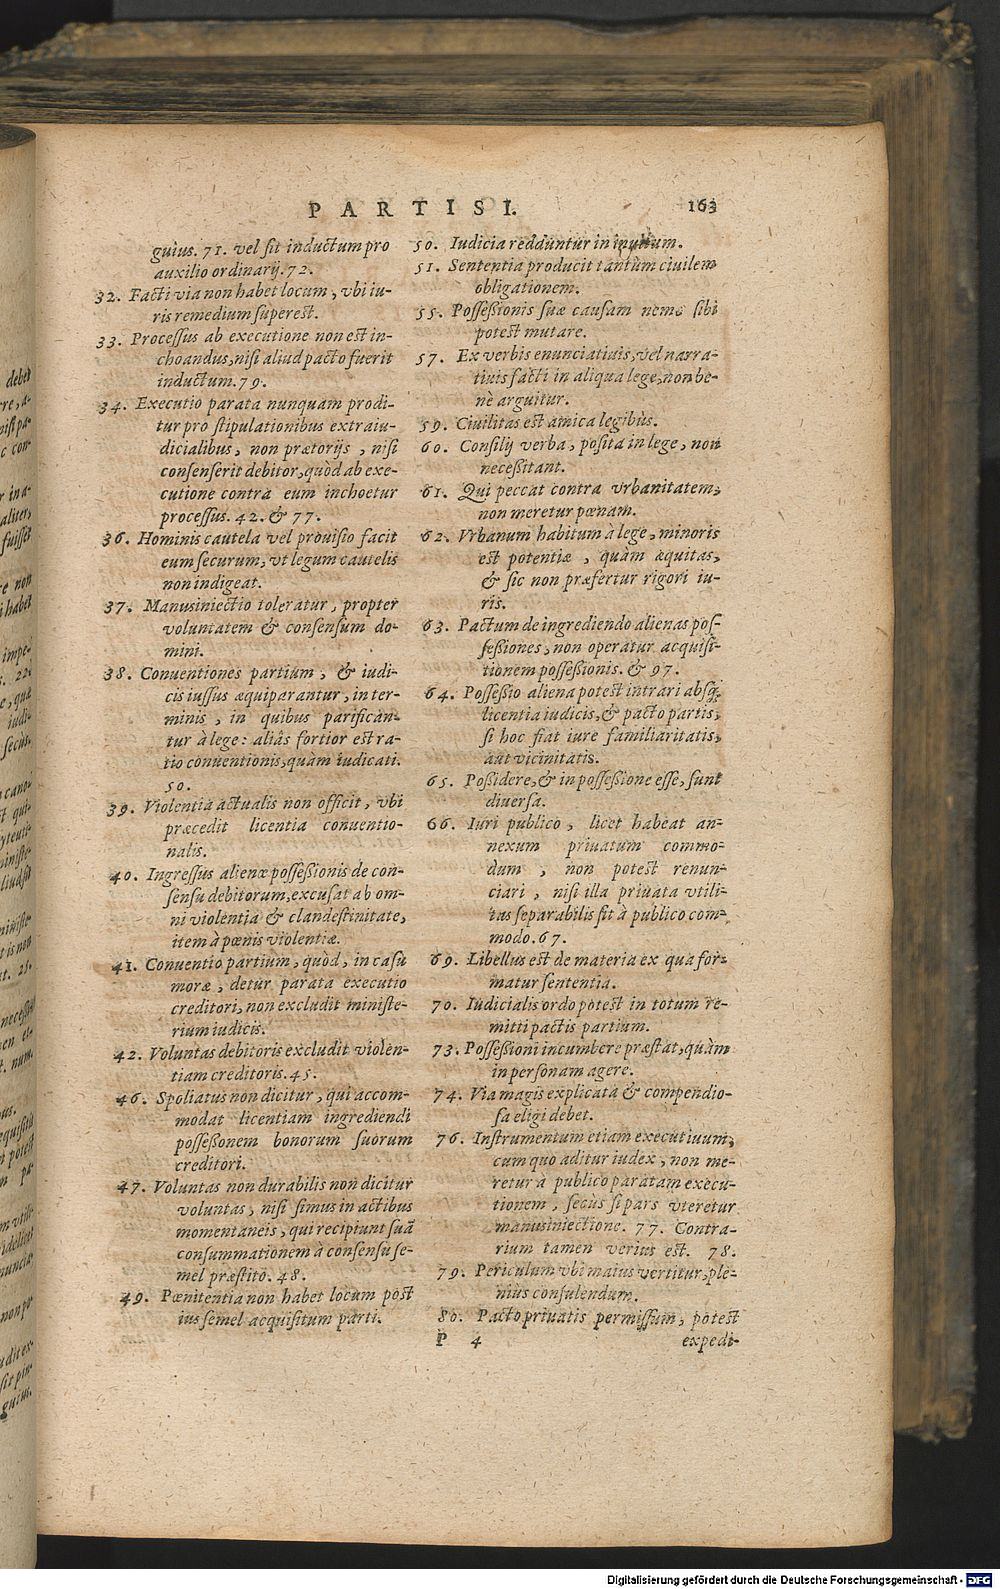 PARTIS I. 163
guius. 71. vel sit inductum pro
auxilio ordinarij. 72.
32. Facti via non habet locum, vbi iu-
ris remedium superest.
33. Processus ab executione non est in-
choandus, nisi aliud pacto fuerit
inductum. 79.
34. Executio parata nunquam prodi-
tur pro stipulationibus extraiu-
dicialibus, non prætorijs, nisi
consenserit debitor, quòd ab exe-
cutione contra eum inchoetur
processus. 42. & 77.
36. Hominis cautela vel prouisio facit
eum securum, vt legum cautelis
non indigeat.
37. Manusiniectio toleratur, propter
voluntatem & consensum do-
mini.
38. Conuentiones partium, & iudi-
cis iussus æquiparantur, in ter-
minis, in quibus parifican-
tur à lege: aliâs fortior est ra-
tio conuentionis, quàm iudicati.
50.
39. Violentia actualis non officit, vbi
præcedit licentia conuentio-
nalis.
40. Ingressus alienæ possessionis de con-
sensu debitorum, excusat ab om-
ni violentia & clandestinitate,
item à pœnis violentiæ.
41. Conuentio partium, quòd, in casu
moræ, detur parata executio
creditori, non excludit ministe-
rium iudicis.
42. Voluntas debitoris excludit violen-
tiam creditoris. 45.
46. Spoliatus non dicitur, qui accom-
modat licentiam ingrediendi
possessonem bonorum suorum
creditori.
47. Voluntas non durabilis non dicitur
voluntas, nisi simus in actibus
momentaneis, qui recipiunt suã
consummationem à consensu se-
mel præstito. 48.
49. Pœnitentia non habet locum post
ius semel acquisitum parti.
50. Iudicia redduntur in inuitum.
51. Sententia producit tantùm ciuilem
obligationem.
55. Possessionis suæ causam nemo sibi
potest mutare.
57. Ex verbis enunciatiuis, vel narra-
tiuis facti in aliqua lege, non be-
nè arguitur.
59. Ciuilitas est amica legibus.
60. Consilij verba, posita in lege, non
necessitant.
61. Qui peccat contra vrbanitatem,
non meretur pœnam.
62. Vrbanum habitum à lege, minoris
est potentiæ, quàm æquitas,
& sic non præfertur rigori iu-
ris.
63. Pactum de ingrediendo alienas pos-
sessiones, non operatur acquisi-
tionem possessionis. & 97.
64. Possessio aliena potest intrari absq;
licentia iudicis, & pacto partis,
si hoc fiat iure familiaritatis,
aut vicinitatis.
65. Possidere, & in possessione esse, sunt
diuersa.
66. Iuri publico, licet habeat an-
nexum priuatum commo-
dum, non potest renun-
ciari, nisi illa priuata vtili-
tas separabilis sit à publico com-
modo. 67.
69. Libellus est de materia ex qua for-
matur sententia.
70. Iudicialis ordo potest in totum re-
mitti pactis partium.
73. Possessioni incumbere præstat, quàm
in personam agere.
74. Via magis explicata & compendio-
sa eligi debet.
76. Instrumentum etiam executiuum,
cum quo aditur iudex, non me-
retur à publico paratam execu-
tionem, secùs si pars vteretur
manusiniectione. 77. Contra-
rium tamen verius est. 78.
79. Periculum vbi maius vertitur, ple-
nius consulendum.
80. Pacto priuatis permissum, potest
P 4 expedi-
Digitalisierung gefördert durch die Deutsche Forschungsgemeinschaft - DFG